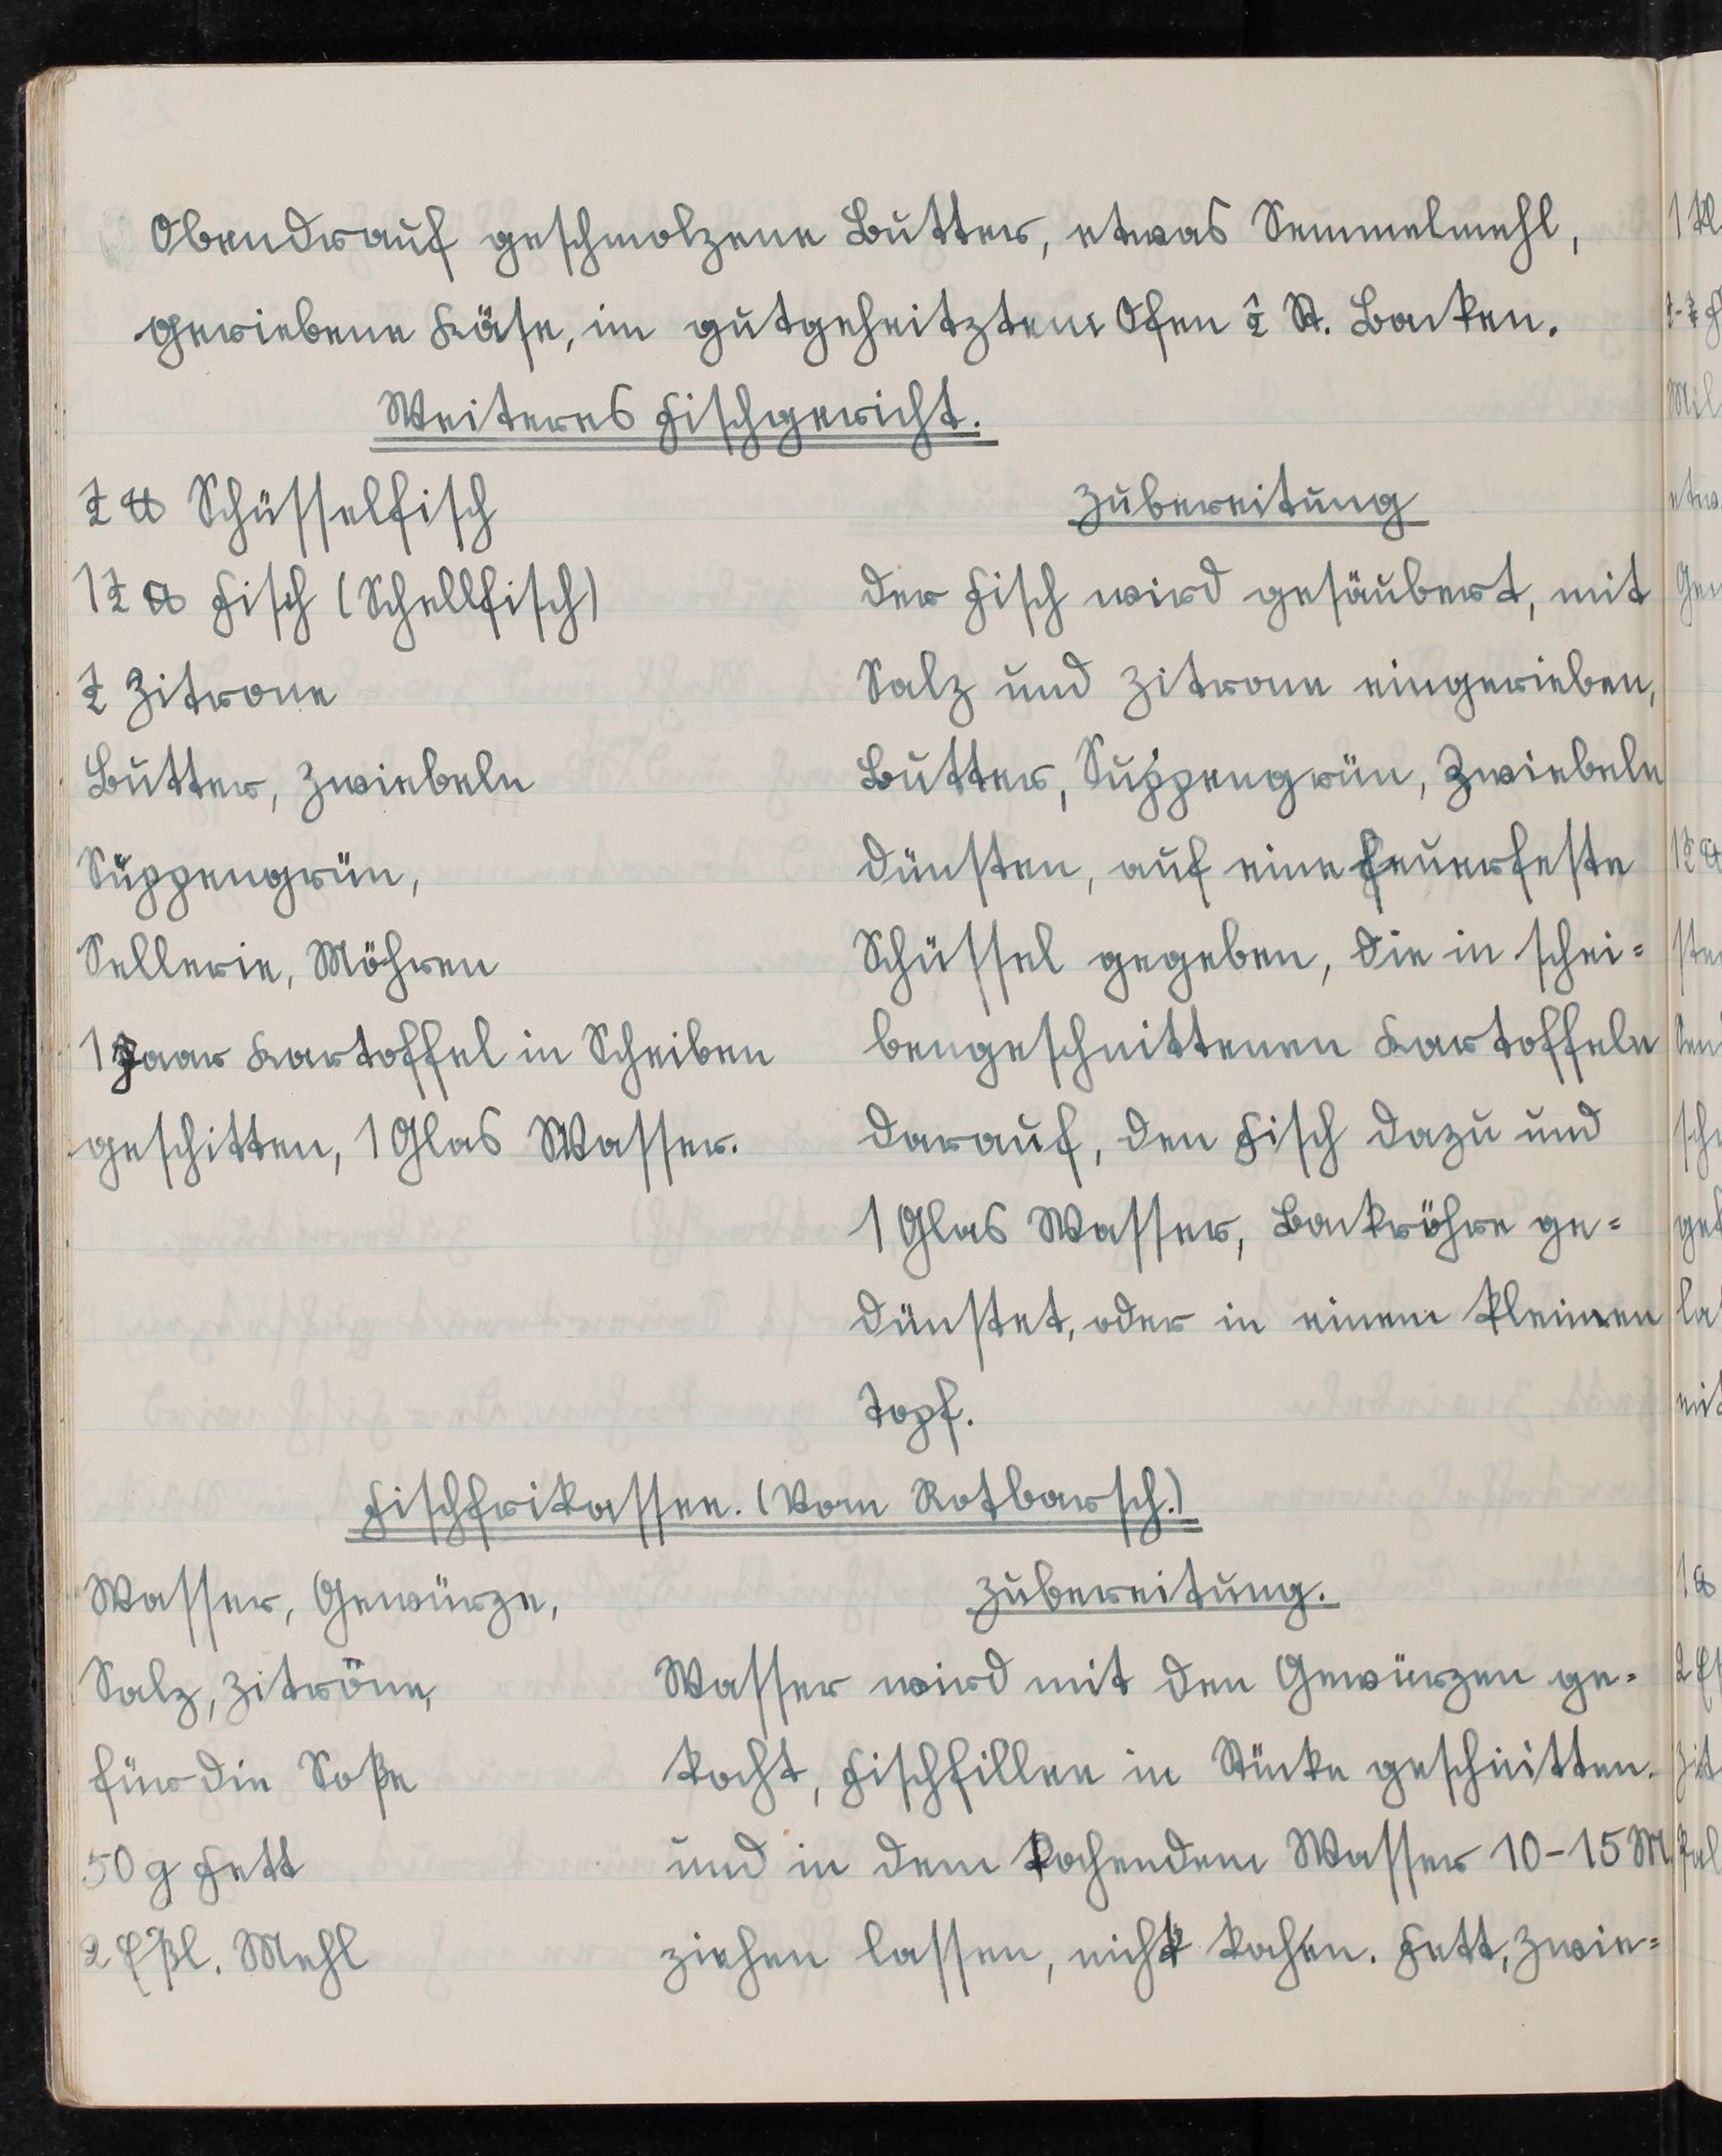 Obendrauf geschmolzene Butter, etwas Semmelmehl,
geriebene Käse, im gutgeheitztem Ofen ½ St. Backen.
Weiteres Fischgericht.
½ ℔ Schüsselfisch
1½ ℔ Fisch (Schellfisch)
½ Zitrone
Butter, Zwiebeln
Suppengrün,
Sellerie, Möhren
1 Paar Kartoffel in Scheiben
geschitten, 1 Glas Wasser.
Zubereitung
der Fisch wird gesäubert, mit
Salz und Zitrone eingerieben,
Butter, Suppengrün, Zwiebeln
dünsten, auf eine Feuerfeste
Schüssel gegeben, die in schei=
bengeschnittenen Kartoffeln
darauf, den Fisch dazu und
1 Glas Wasser, Backröhre ge=
dünstet, oder in einem kleinen
Topf.
Fischfrikassee. (Vom Rotbarsch.)
Wasser, Gewürze,
Salz, Zitrone,
für die Soße
50 g Fett
2 Eßl. Mehl
Zubereitung.
Wasser wird mit den Gewürzen ge=
kocht, Fischfillee in Stücke geschnitten.
und in dem kochendem Wasser 10-15 M
ziehen lassen, nicht kochen. Fett, Zwie=